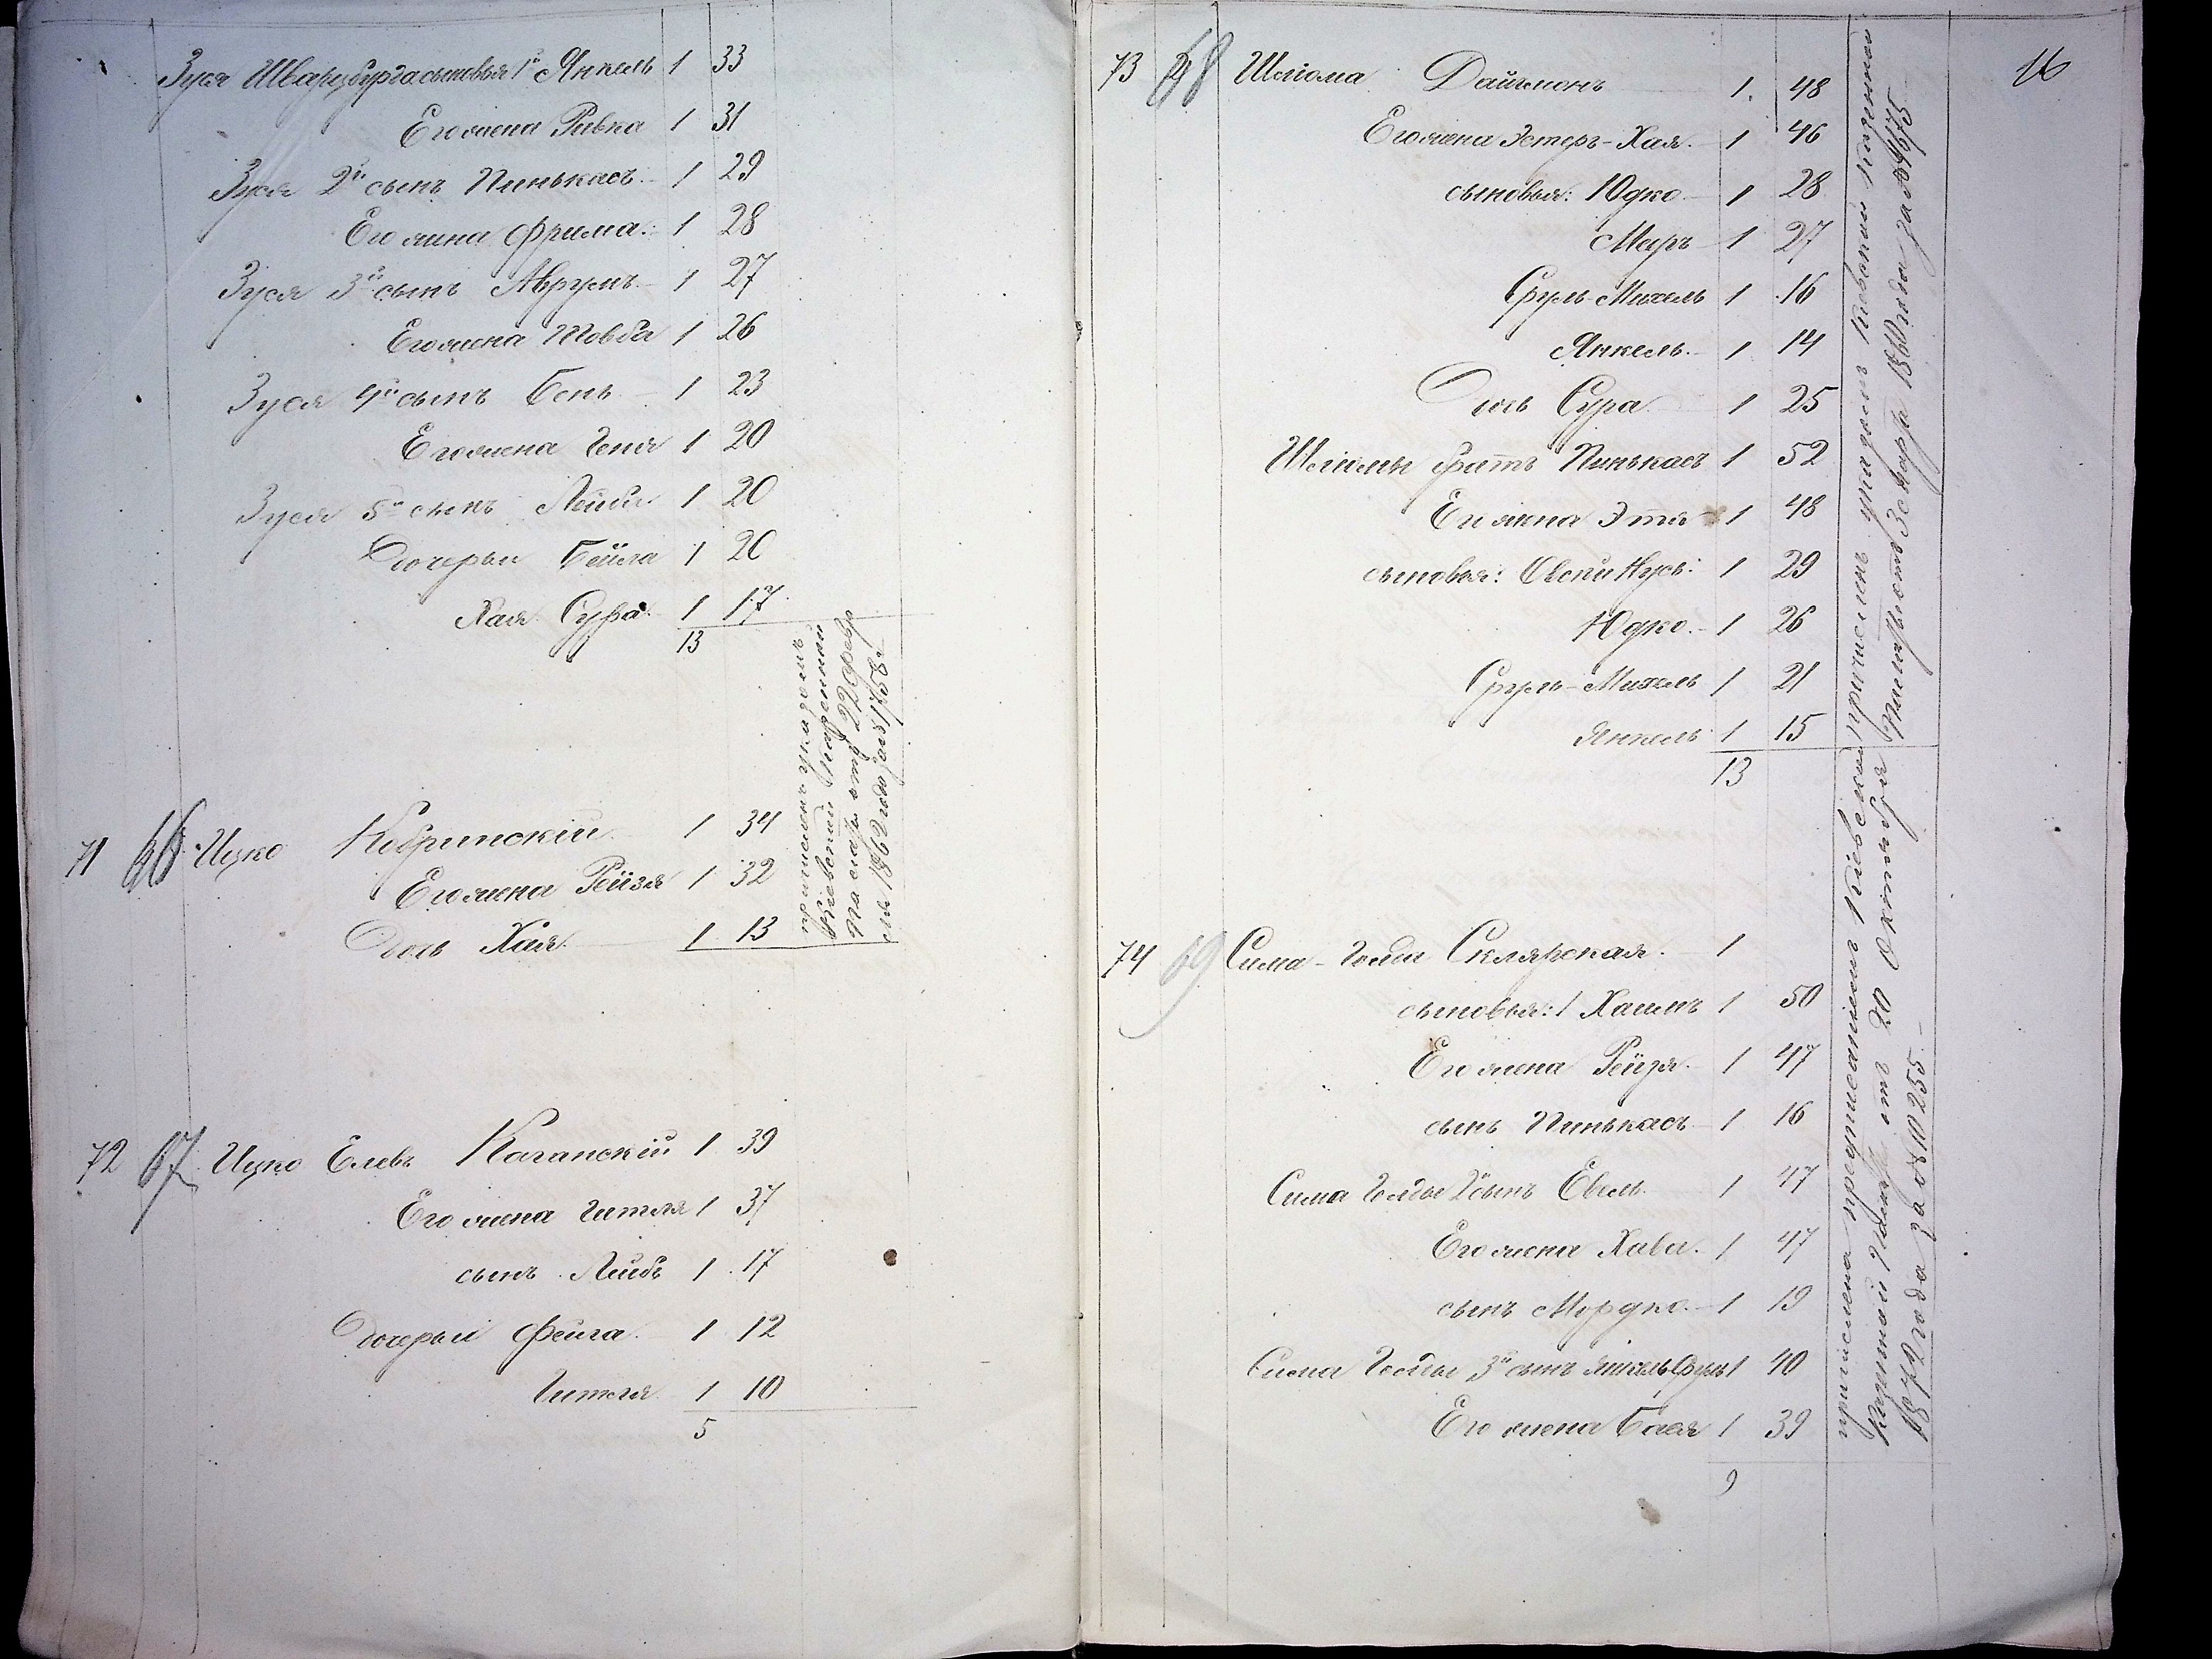 Зуся Шварцбурга сыновья 1й Янкель 1 33
Его жена Ривка 1 31
Зуся 2й сынъ Пинькасъ 1 29
Его жина Фрима. 1 28
Зуся 3й сынъ Аврумъ 1 27
Его жена Товба 1 26
Зуся 4й сынъ Бень 1 23
Его жена Геня 1 20
Зуся 5й сынъ Лейба 1 20
Дочерьи Бейла 1 20
Хая Сура 1 17
13
71 66 Ицко Кобринскій 1 34
Его жена Рейзя 1 32
Дочь Хая. 1 13
причисленъ указомъ
Кіевской Казенной
Палаты отъ 22 Февр
1862 года за №1758
72 67 Ицко Елевъ Каганскій 1 39
Его жена Гитля 1 37
сынъ Лейбъ 1 17
Дочерьи Фейга 1 12
Гитля 1 10
5
16
73 68 Шліома Дайчманъ 1 48
Его жена Эстеръ-Хая. 1 46
сыновья: Юдко 1 28
Меръ 1 27
Сруль-Михель 1 16
Янкель. 1 14
Дочь Сура 1 25
Шліомы братъ Пинькасъ 1 52
Его жена Этя 1 48
сыновья: 1 29
Юдко. 1 26
Сруль-Михель 1 21
Янкель 1 15
13
причисленъ указомъ Кіевской Казенной
Палаты отъ 3 1860 года за №
74 69 Сима-Голда Склярская. 1
сыновья: 1 Хаимъ 1 50
Его жена Рейзя. 1 47
сынъ Пинькасъ 1 16
Сима Голды 2 сынъ Евель 1 47
Его жена Хава. 1 47
сынъ Мордко. 1 19
Сима Голды 3й сынъ Янкель Сруль 1 40
Его жена Бася 1 39
9
причислена предписаніемъ Кіевской
Казенной Палаты отъ 20 Октября
1872 года за № 10255